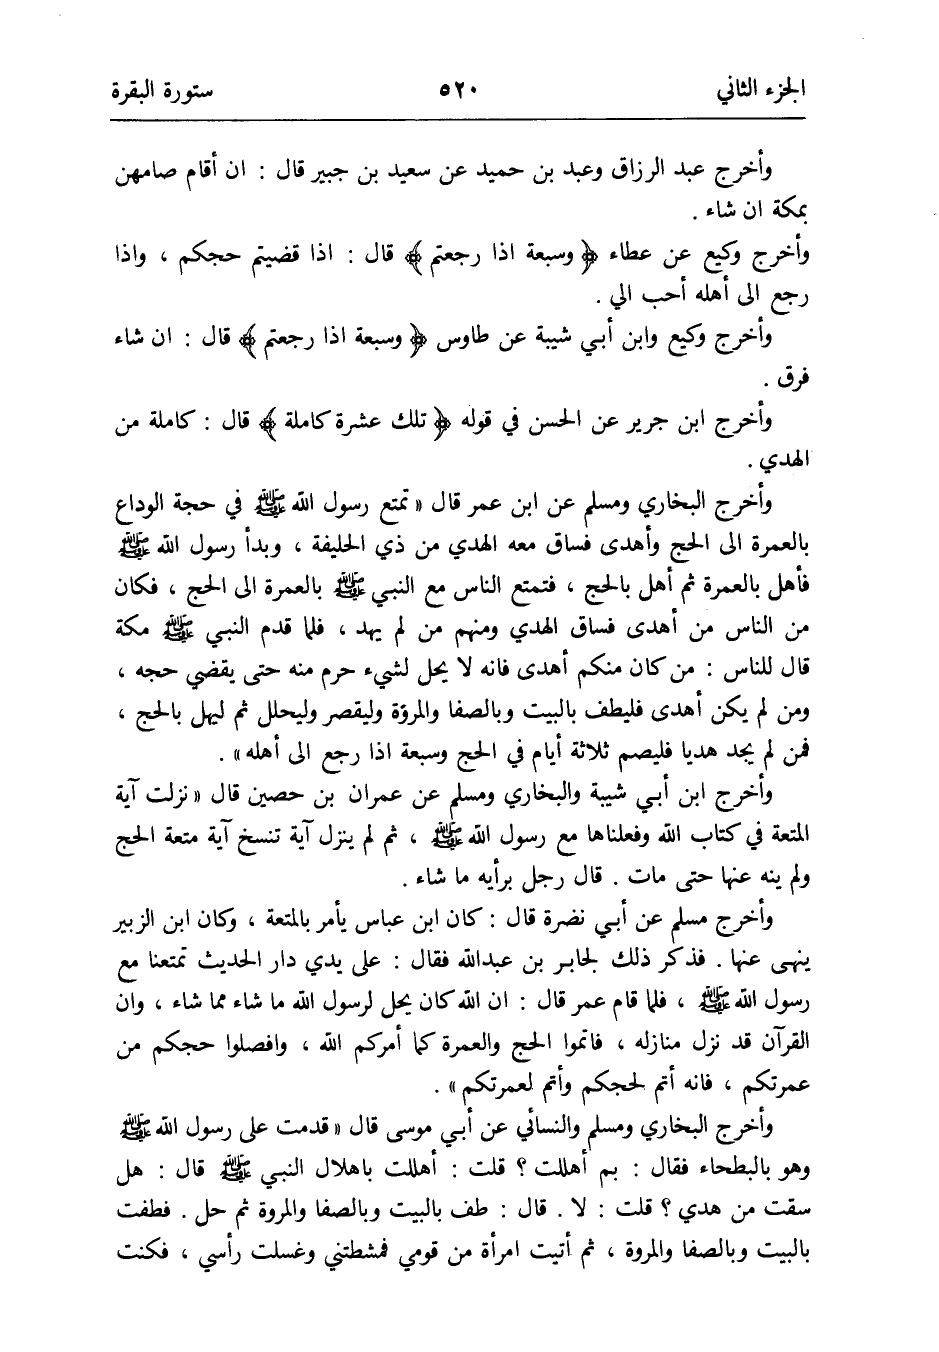 الجزء الثاني ٥٢٠ ستورة البقرة
وأخرج عبد الرزاق وعبد بن حميد عن سعيد بن جبير قال : ان أقام صامهن
بمكة ان شاء .
وأخرج وكيع عن عطاء ﴿ وسبعة اذا رجعتم ﴾ قال : اذا قضيتم حجكم ، واذا
رجع الى أهله أحب الي .
وأخرج وكيع وابن أبي شيبة عن طاوس ﴿ وسبعة اذا رجعتم ﴾ قال : ان شاء
فرق .
وأخرج ابن جرير عن الحسن في قوله ﴿ تلك عشرة كاملة ﴾ قال : كاملة من
الهدي .
وأخرج البخاري ومسلم عن ابن عمر قال « تمتع رسول الله ﷺ في حجة الوداع
بالعمرة الى الحج وأهدى فساق معه الهدي من ذي الحليفة ، وبدأ رسول الله ﷺ
فأهل بالعمرة ثم أهل بالحج ، فتمتع الناس مع النبي ﷺ بالعمرة الى الحج ، فكان
من الناس من أهدى فساق الهدي ومنهم من لم يهد ، فلما قدم النبي ﷺ مكة
قال للناس : من كان منكم أهدى فانه لا يحل لشيء حرم منه حتى يقضي حجه ،
ومن لم يكن أهدى فليطف بالبيت وبالصفا والمرؤة وليقصر وليحلل ثم ليهل بالحج ،
فمن لم يجد هديا فليصم ثلاثة أيام في الحج وسبعة اذا رجع الى أهله » .
وأخرج ابن أبي شيبة والبخاري ومسلم عن عمران بن حصين قال « نزلت آية
المتعة في كتاب الله وفعلناها مع رسول الله ﷺ ، ثم لم ينزل آية تنسخ آية متعة الحج
ولم ينه عنها حتى مات . قال رجل برأيه ما شاء .
وأخرج مسلم عن أبي نضرة قال : كان ابن عباس يأمر بالمتعة ، وكان ابن الزبير
ينهى عنها . فذكر ذلك لجابر بن عبدالله فقال : على يدي دار الحديث تمتعنا مع
رسول الله ﷺ ، فلما قام عمر قال : ان الله كان يحل لرسول الله ما شاء مما شاء ، وان
القرآن قد نزل منازله ، فاتموا الحج والعمرة كما أمركم الله ، وافصلوا حجكم من
عمرتكم ، فانه أتم لحجكم وأتم لعمرتكم » .
وأخرج البخاري ومسلم والنسائي عن أبي موسى قال « قدمت على رسول الله ﷺ
وهو بالبطحاء فقال : بم أهللت ؟ قلت : أهللت باهلال النبي ﷺ قال : هل
سقت من هدي ؟ قلت : لا . قال : طف بالبيت وبالصفا والمروة ثم حل . فطفت
بالبيت وبالصفا والمروة ، ثم أتيت امرأة من قومي فمشطتني وغسلت رأسي ، فكنت